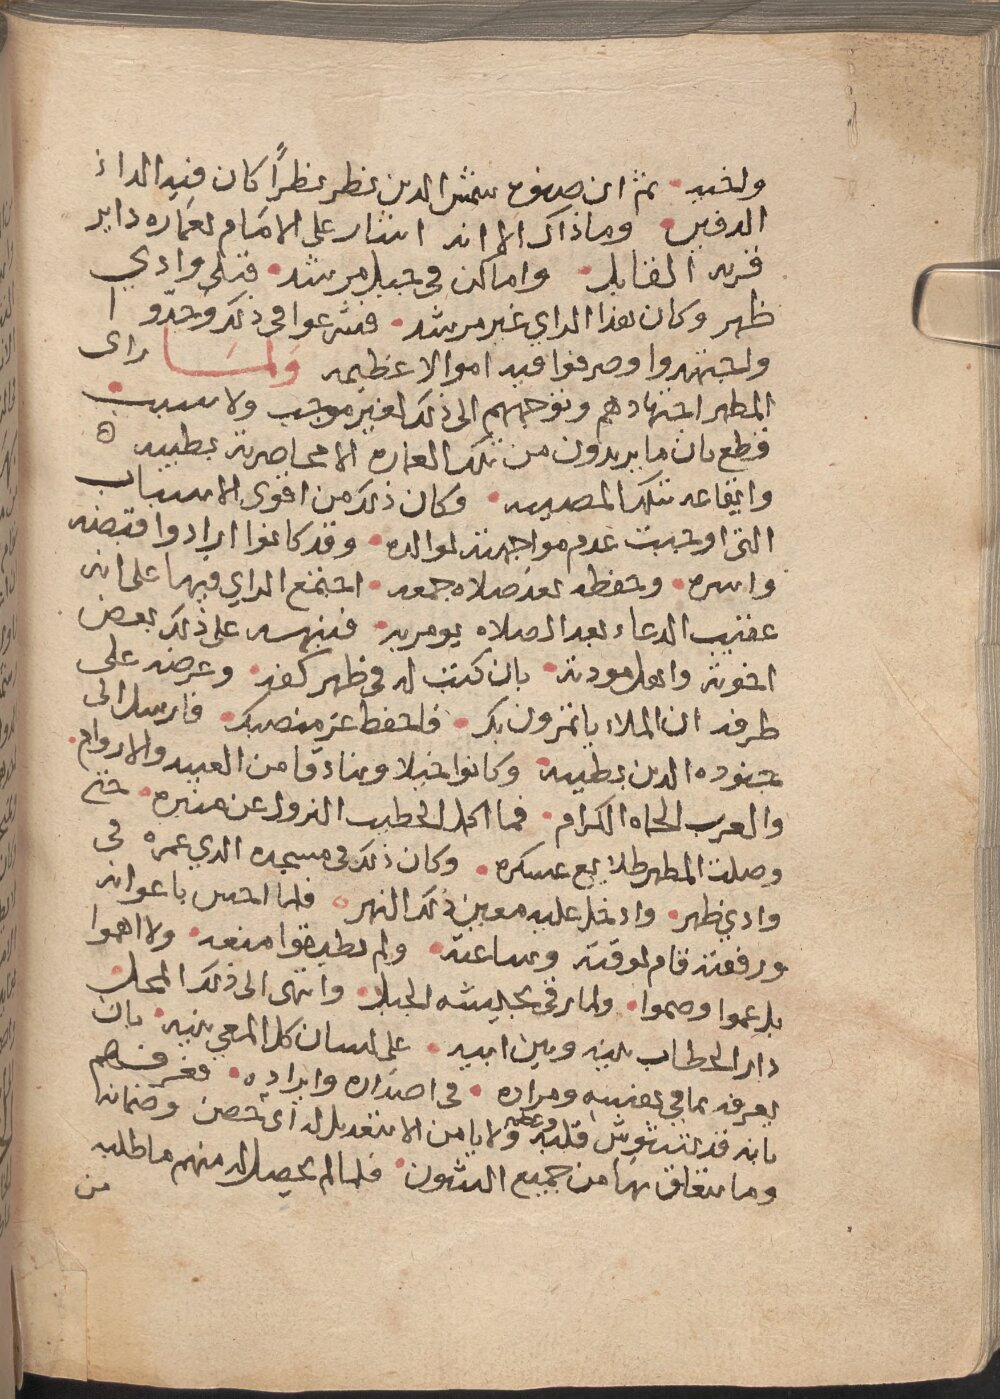 ولخيه ثم ان صنوه شمش الدين نظر نظراً كان فيه الداء
الدفين وما ذاك الا انه اشار على الامام بعماره داير
قريه القابل واماكن في جبيل مرشد قبلي وادي
ظهر وكان هذا الراي غير مرشد فشرعوا في ذلك وجدّوا
واجتهدوا وصرفوا فيه اموالا عظيمه ولما راى
المطهر اجتهادهم وتوجههم الى ذلك لغير موجب ولا سبب
قطع بان ما يريدون من تلك العماره الا محاصرته بطيبه
وايقاعه بتلك المصيبه وكان ذلك من اقوى الاسباب
التي اوجبت عدم مواجهته لوالده وقد كانوا ارادوا قبضه
واسره وحفظه بعد صلاه جمعه اجتمع الراي فيها على انه
عقيب الدعاء بعد الصلاه يومر به فنبهه على ذلك بعض
اخوته واهل مودته بان كتب له في ظهر كفه وعرضه على
طرفه ان الملاء ياتمرون بك فاحفظ عز منصبك فارسل الى
جنوده الذين بطيبه وكانوا خيلا وبنادقا من العبيد والاروام
والعرب الحماه الكرام فما اكمل الخطيب النزول عن منبره حتى
وصلت المطهر طلايع عسكره وكان ذلك في مسجده الذي عمره في
وادي ظهر وادخل عليه معين ذلك النهر فلما احس باعوانه
ورفعته قام لوقته وساعته ولم يطيقوا منعه ولا اهموا
بل عموا وصموا ولما رقى بجيشه الجبل وانتهى الى ذلك المحل
دار الخطاب بينه وبين ابيه على لسان كل المعي نبيه بان
يعرفه بما في نفسه ومراده في اصداره وايراده فعرفهم
بانه قد تشوش قلبه وعظمه ولا يامن الا بتعديل له اي حصن وضمانها
وما يتعلق بها من جميع الشون فلما لم يحصل له منهم ما طلبه
من